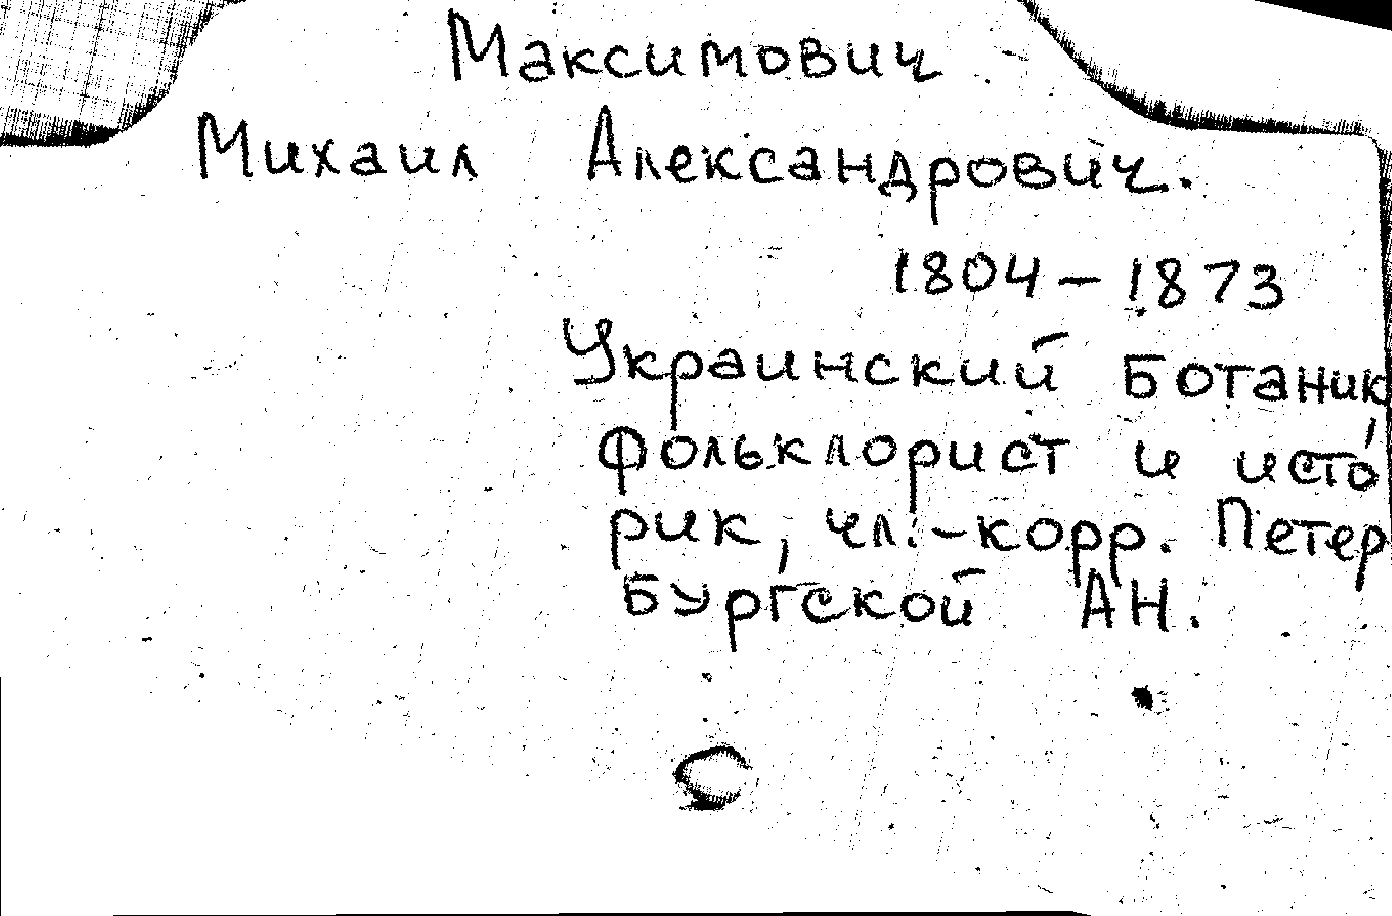 Максимович
Михаил Александрович.
1804 – 1873
Украинский Ботаник,
фольклорист и исто
рик, чл.-корр. Петер
бургской АН.